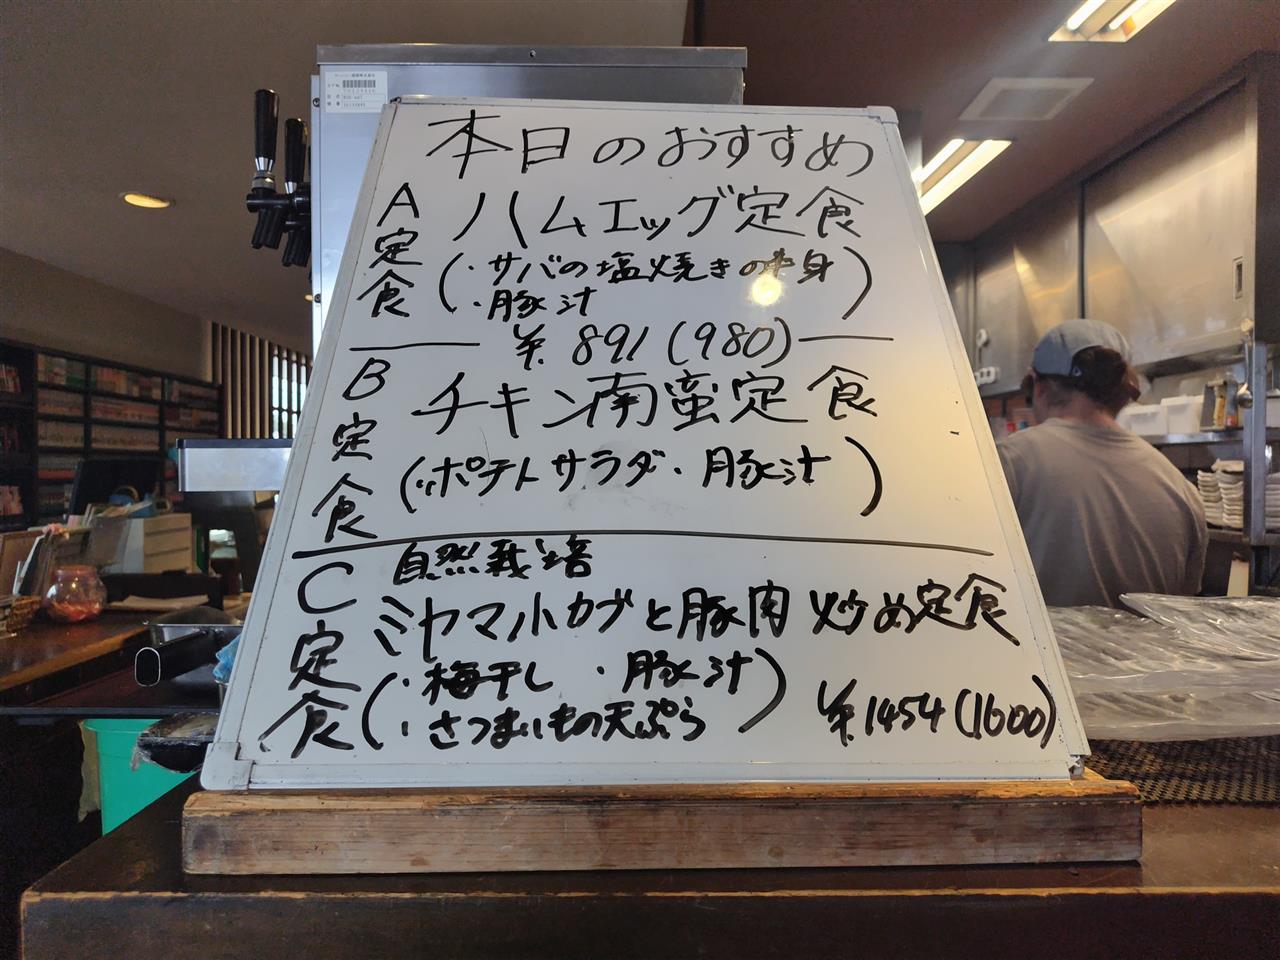 本日のおすすめ
A定食
ハムエッグ定食
(・サバの塩焼きの中身
・豚汁)
¥891(980)
B定食
チキン南蛮定食
(ポテトサラダ・豚汁)
C定食
自然栽培
ミヤマ小カブと豚肉炒め定食
(・梅干し ・豚汁
・さつまいもの天ぷら)
¥1454(1600)